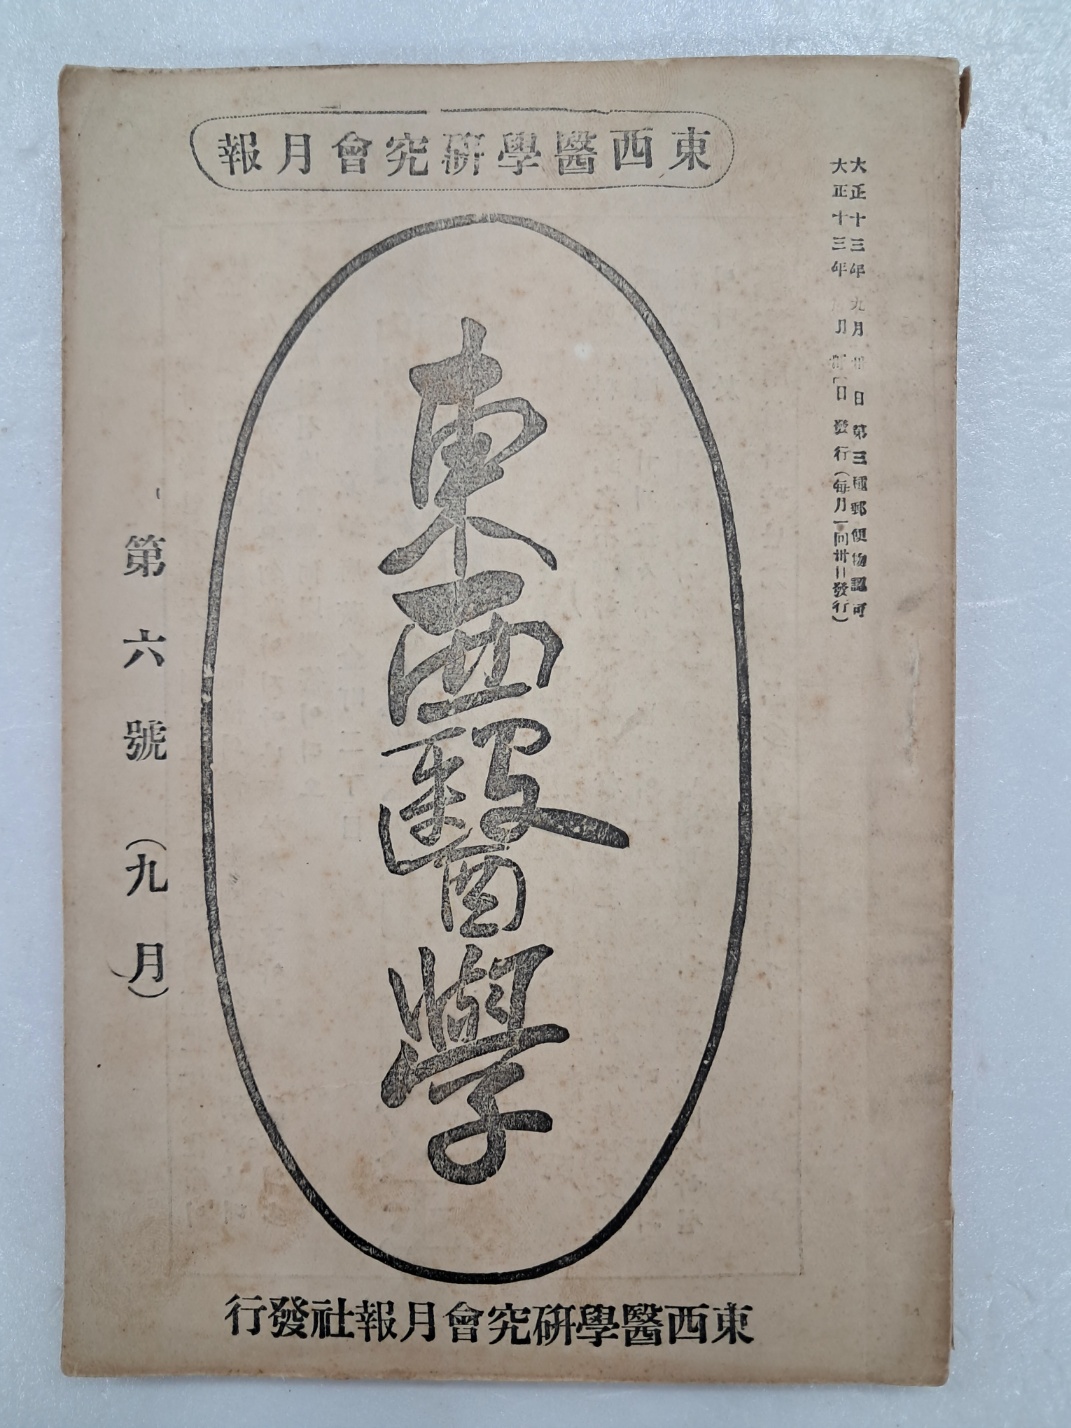 東西醫學硏究會月報
大正十三年九月卅日第三種郵便物認可
大正十三年 月 日發行(每月一回卅日發行)
東西醫學
第六號(九月)
東西醫學硏究會月報社發行